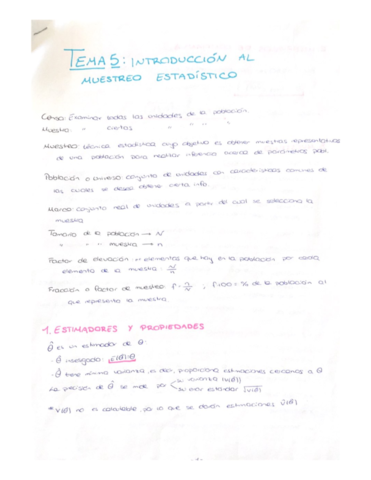 TEMA 5: INTRODUCCIÓN AL
MUESTREO ESTADÍSTICO
Censo: Examinar todas las unidades de la población
Muestra: " ciertas " " " "
Muestreo: técnica estadística cuyo objetivo es obtener muestras representativas
de una población para realizar inferencia acerca de parámetros pobl.
Población o universo: conjunto de unidades con características comunes de
las cuales se desea obtener cierta info.
Marco: conjunto real de unidades a partir del cual se selecciona la
muestra
Tamaño de la población → N
" " " muestra → n
Factor de elevación = elementos que hay en la población por cada
elemento de la muestra: N/n
Fracción o factor de muestreo: f = n/N ; f·100 = % de la población al
que representa la muestra
1. ESTIMADORES Y PROPIEDADES
θ̂ es un estimador de θ:
· θ̂ insesgado: E(θ̂)=θ
· θ̂ tiene mínima varianza, es decir, proporciona estimaciones cercanas a θ
La precisión de θ̂ se mide por su varianza (V(θ̂))
su error estándar √V(θ̂)
* V(θ̂) no es calculable, por lo que se darán estimaciones V̂(θ̂)